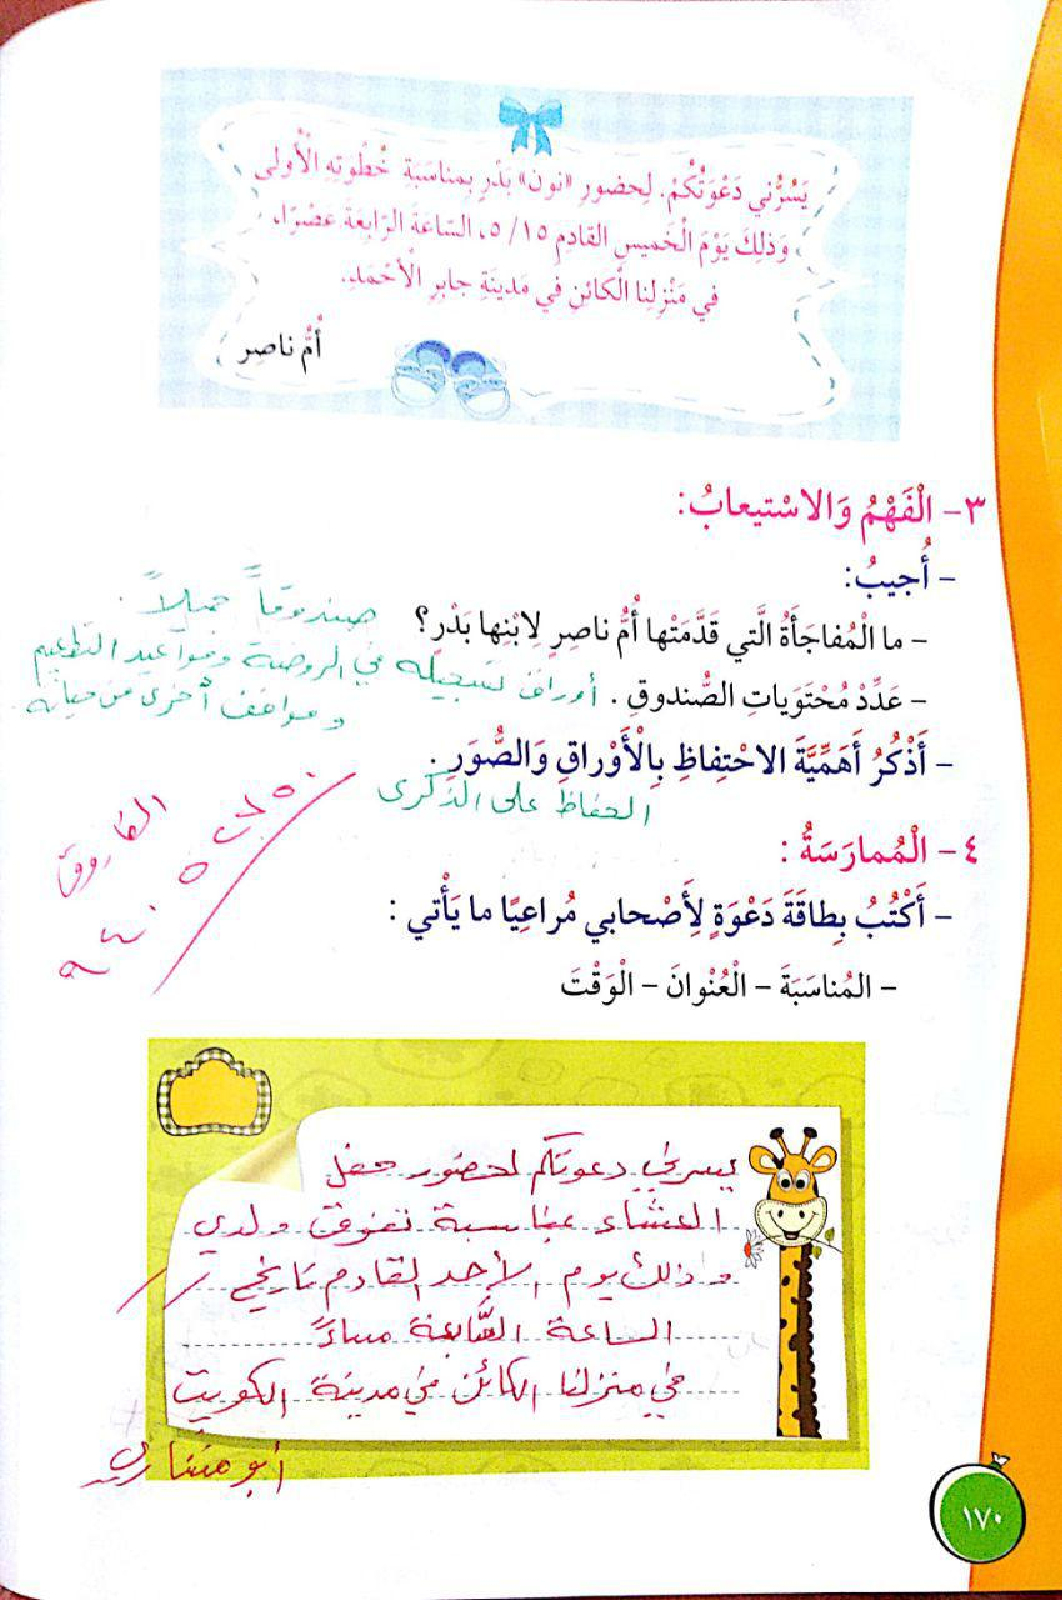 يَسُرُّني دَعْوَتُكُمْ. لِحضورِ «نون» بَدْرٍ بِمناسَبَةِ خُطْوتِهِ الْأولى
وَذلِكَ يَوْمَ الْخَميسِ القادِمِ ١٥/ ٥، السّاعَةَ الرّابِعَةَ عَصْرًا،
في مَنْزِلِنا الْكائِنِ في مَدينَةِ جابِرِ الْأَحْمَدِ.
أُمُّ ناصِر
٣- الْفَهْمُ وَالاسْتيعابُ:
- أُجيبُ:
- ما الْمُفاجَأَةُ الَّتي قَدَّمَتْها أُمُّ ناصِرٍ لِابْنِها بَدْرٍ؟ صندوقاً جميلاً.
- عَدِّدْ مُحْتَوَياتِ الصُّندوقِ. أوراق تسجيله في الروضة ومواعيد التطعيم
ومواقف أخرى من حياته.
- أَذْكُرُ أَهَمِّيَّةَ الاحْتِفاظِ بِالْأَوْراقِ وَالصُّوَرِ.
الحفاظ على الذكرى
٤- الْمُمارَسَةُ:
- أَكْتُبُ بِطاقَةَ دَعْوَةٍ لِأَصْحابي مُراعِيًا ما يَأْتي:
- المُناسَبَةَ - الْعُنْوانَ - الْوَقْتَ
يسرني دعوتكم لحضور حفل
العشاء بمناسبة تفوق ولدي
وذلك يوم الأحد القادم تاريخ / /
الساعة السابعة مساءً
في منزلنا الكائن في مدينة الكويت
أبو مشاري
١٧٠